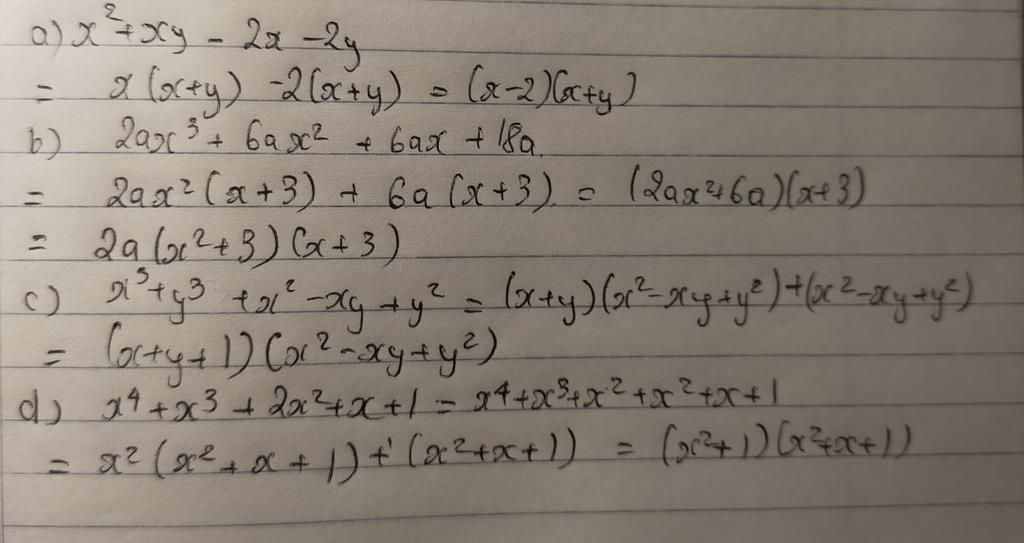 a) x²+xy - 2x - 2y
= x(x+y) - 2(x+y) = (x-2)(x+y)
b) 2ax³ + 6ax² + 6ax + 18a
= 2ax²(x+3) + 6a(x+3) = (2ax²+6a)(x+3)
= 2a(x²+3)(x+3)
c) x³+y³ + x² - xy + y² = (x+y)(x²-xy+y²)+(x²-xy+y²)
= (x+y+1)(x²-xy+y²)
d) x⁴+x³+2x²+x+1 = x⁴+x³+x²+x²+x+1
= x²(x²+x+1)+(x²+x+1) = (x²+1)(x²+x+1)